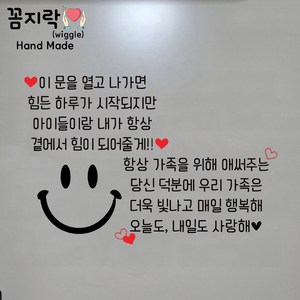 꼼지락
(wiggle)
Hand Made
이 문을 열고 나가면
힘든 하루가 시작되지만
아이들이랑 내가 항상
곁에서 힘이 되어줄게!!
항상 가족을 위해 애써주는
당신 덕분에 우리 가족은
더욱 빛나고 매일 행복해
오늘도, 내일도 사랑해